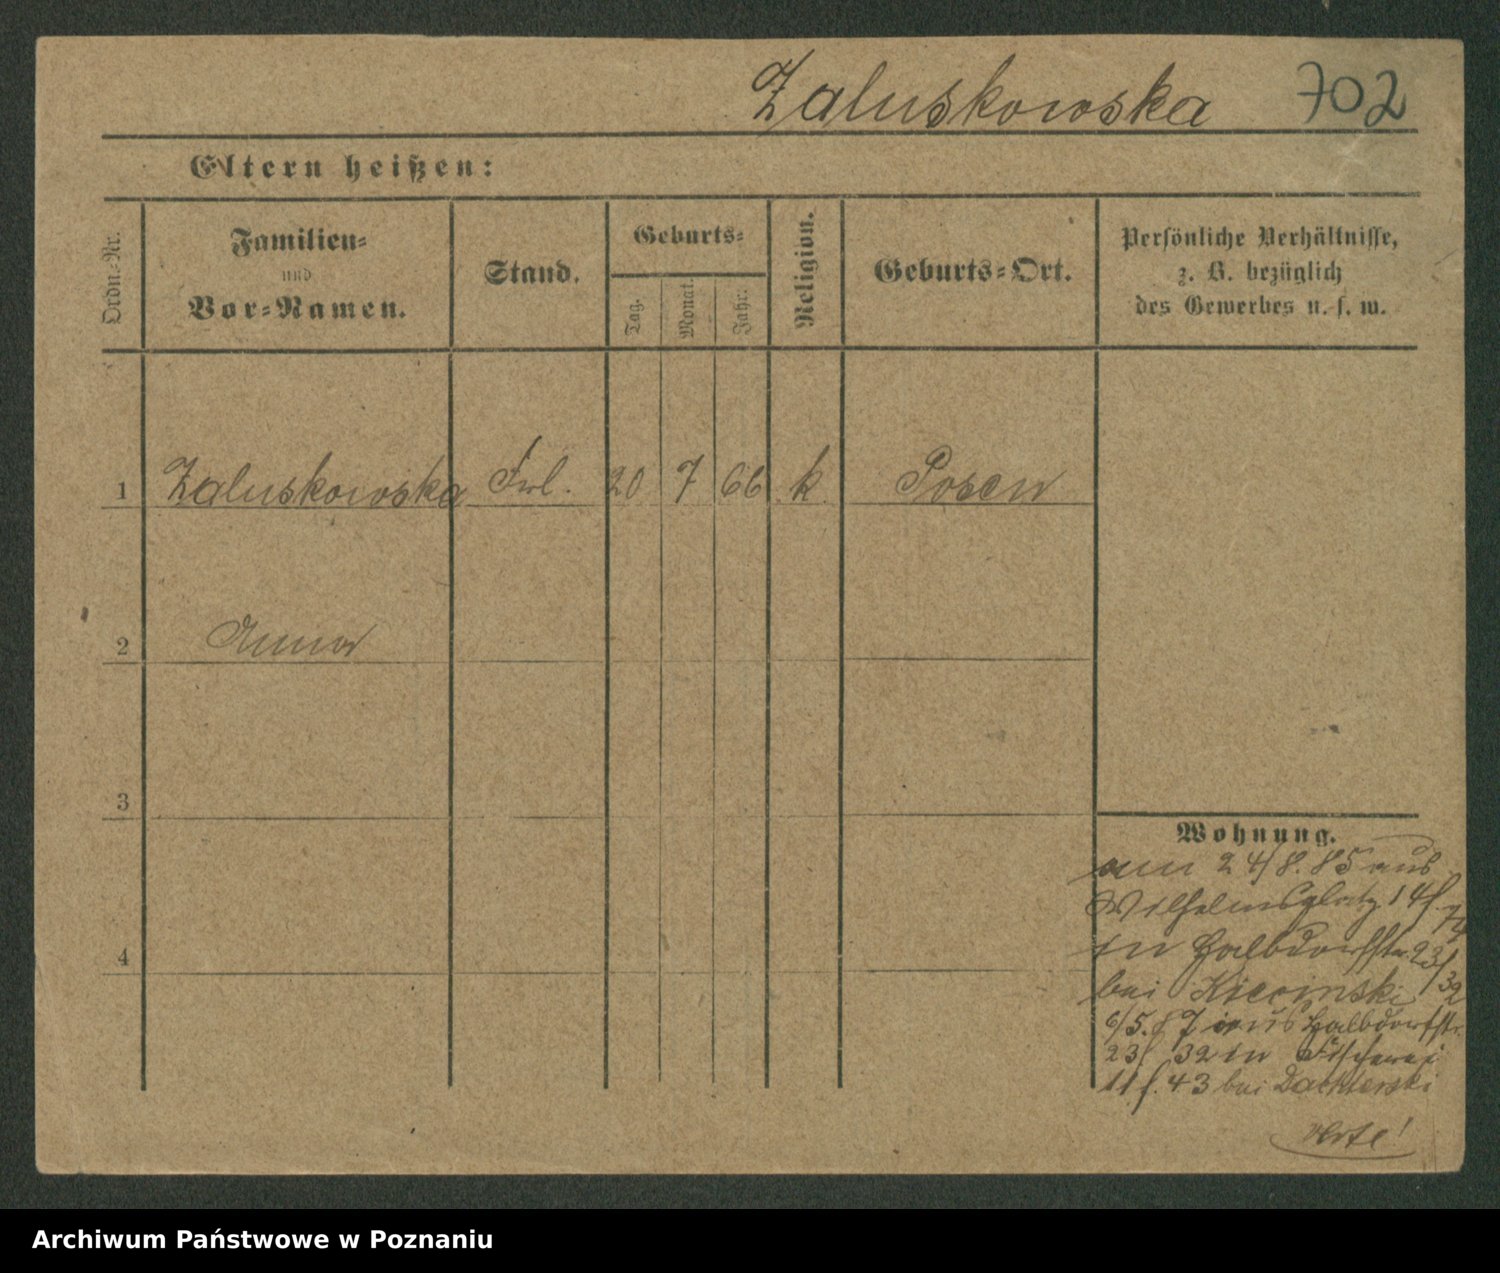 Zaluskowska 702
Eltern heißen:
Ordn.-Nr.
Familien-
und
Vor-Namen.
Stand.
Geburts-
Tag.
Monat.
Jahr.
Religion.
Geburts-Ort.
Persönliche Verhältnisse,
z. B. bezüglich
des Gewerbes u. s. w.
1 Zaluskowska Frl. 20 7 66 k Posen
2 Anna
3
4
Wohnung.
am 24/8.85 aus
Wilhelmsplatz 14
in Halbdorfstr 23/32
bei
6/5.87 aus Halbdorfstr.
23/32 in Fischerei
11 43 bei